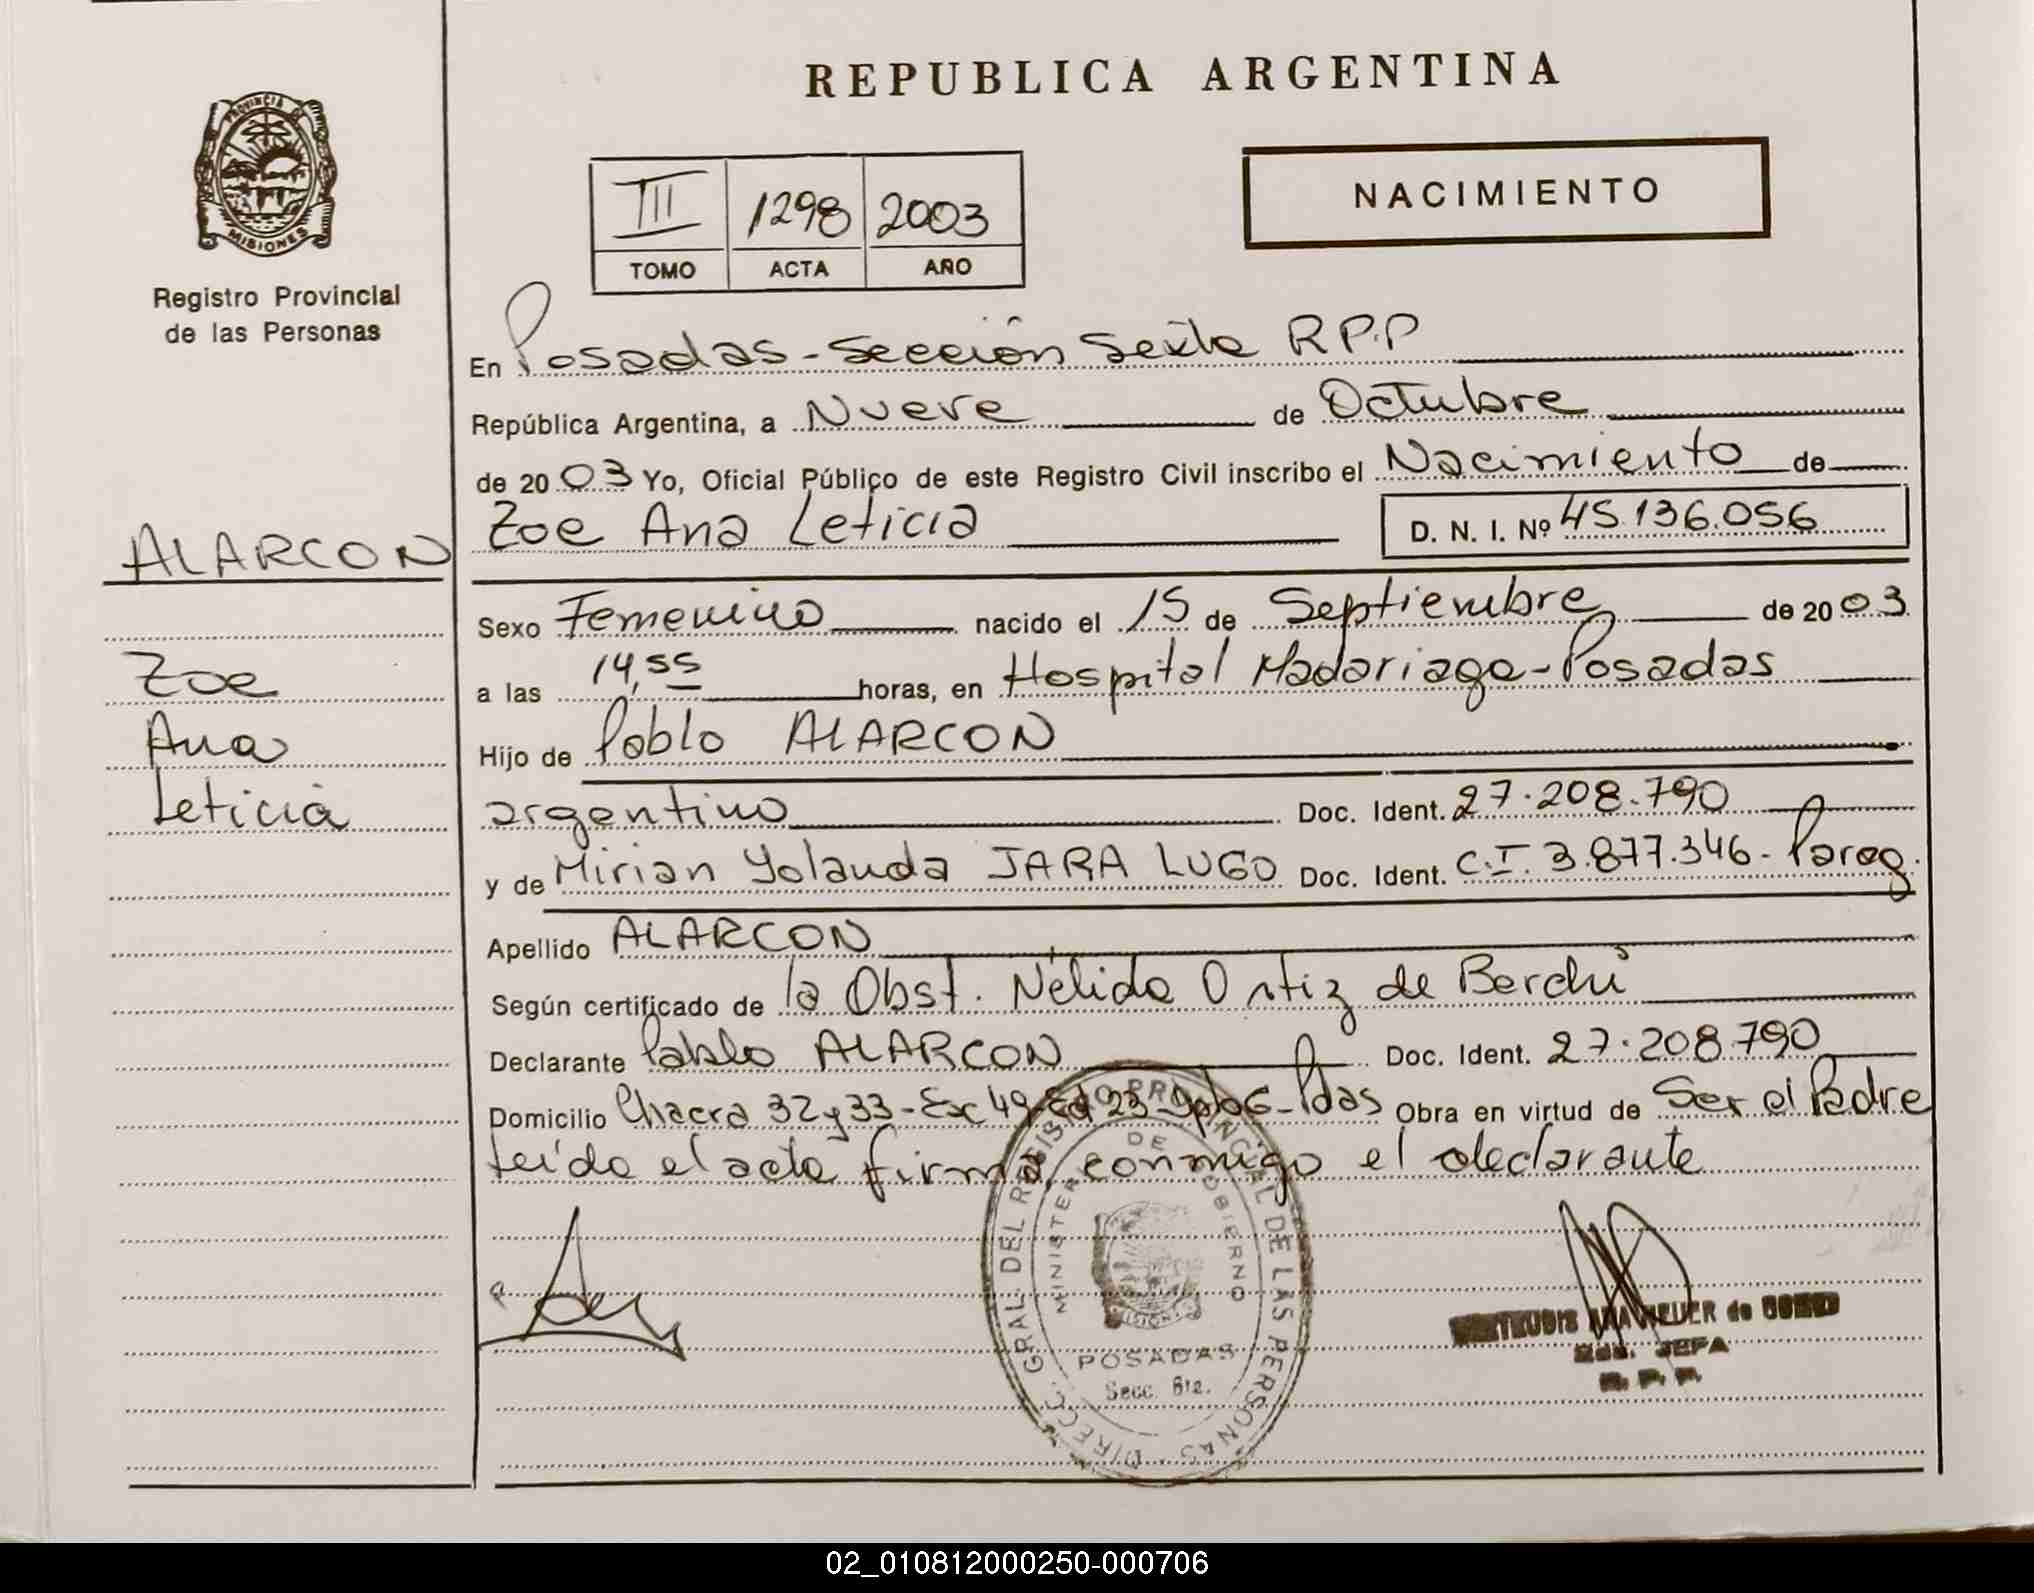 REPUBLICA ARGENTINA
PROVINCIA DE
MISIONES
Registro Provincial
de las Personas
III 1298 2003
TOMO ACTA AÑO
NACIMIENTO
En Posadas - Sección Sexta R.P.P
República Argentina, a Nueve de Octubre
de 2003 Yo, Oficial Público de este Registro Civil inscribo el Nacimiento de
Zoe Ana Leticia D. N. I. Nº 45.136.056
ALARCON
Zoe
Ana
Leticia
Sexo Femenino nacido el 15 de Septiembre de 2003
a las 14,55 horas, en Hospital Madariaga - Posadas
Hijo de Pablo ALARCON
argentino Doc. Ident. 27.208.790
y de Mirian Yolanda JARA LUGO Doc. Ident. C.I. 3.877.346 - Parag.
Apellido ALARCON
Según certificado de la Obst. Nélida Ortiz de
Declarante Pablo ALARCON Doc. Ident. 27.208.790
Domicilio Chacra 32 y 33 - Ex 49 - Ed 23 - Pdas Obra en virtud de Ser el Padre
Leída el acta firma, conmigo el declarante
DIRECC. GRAL DEL REGISTRO PROVINCIAL DE LAS PERSONAS
MINISTERIO DE GOBIERNO
POSADAS
Secc. 6ta.
de
JEFA
R. P. P.
02_010812000250-000706